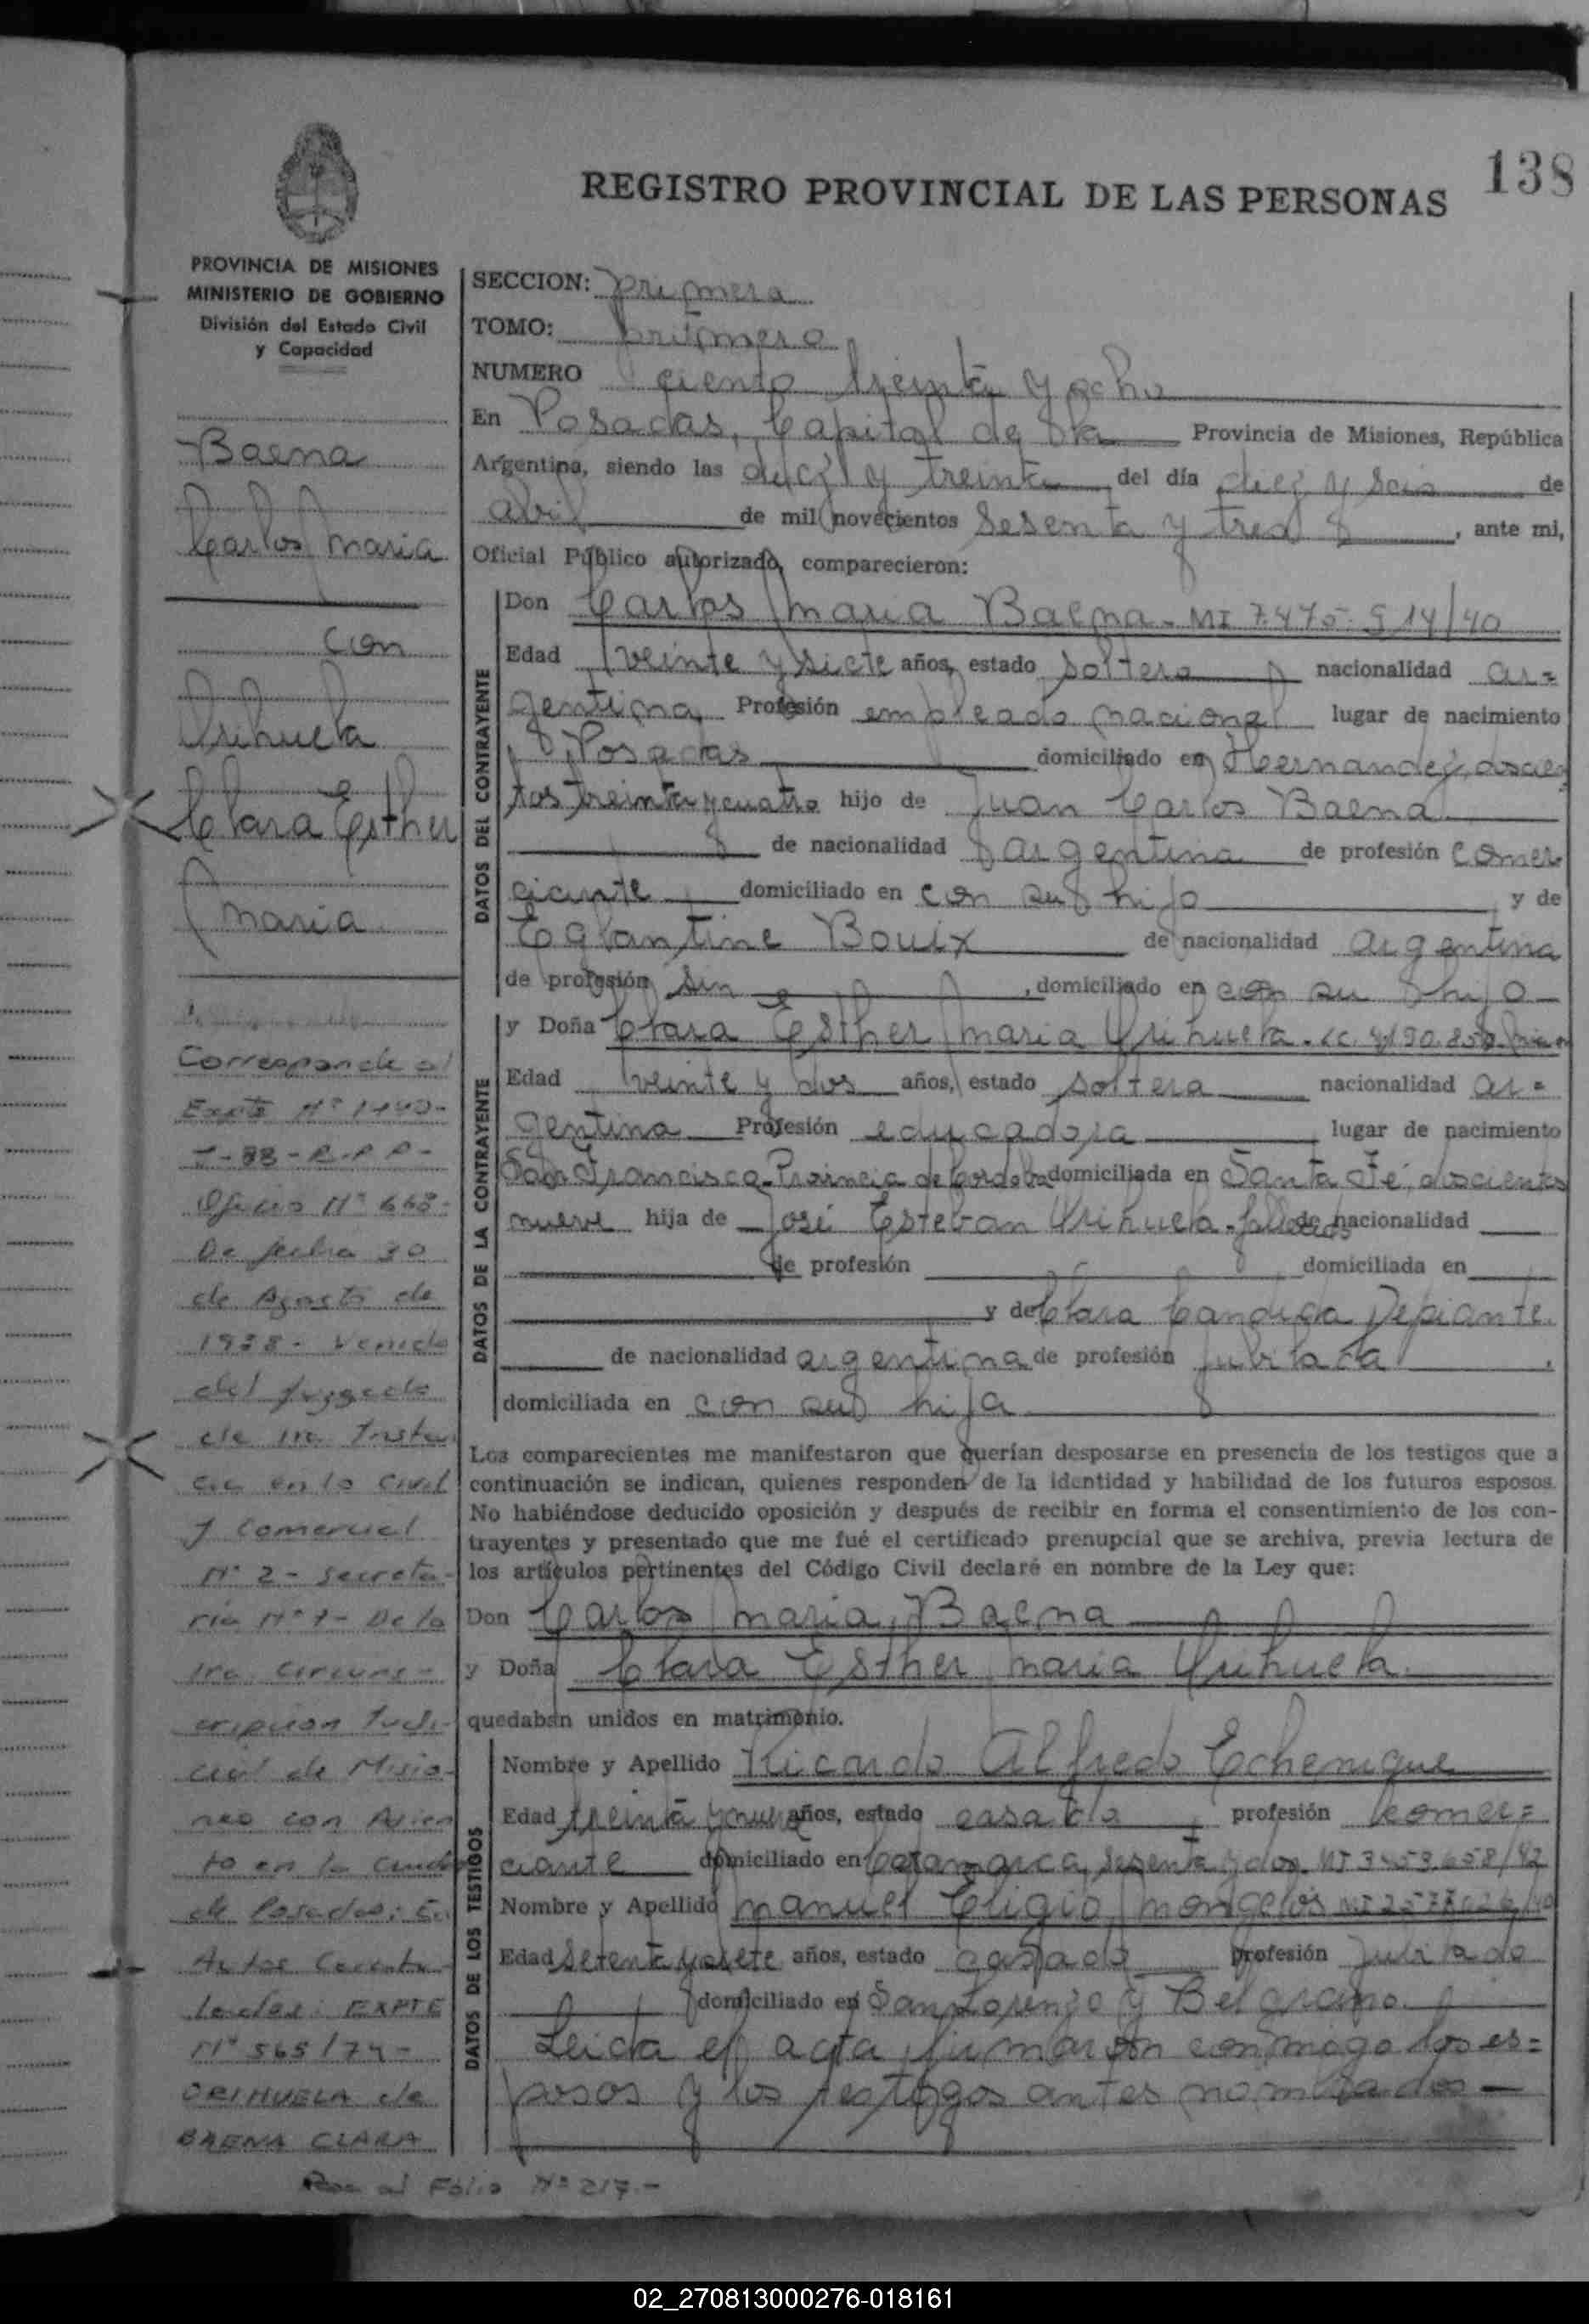 138
REGISTRO PROVINCIAL DE LAS PERSONAS
PROVINCIA DE MISIONES
MINISTERIO DE GOBIERNO
División del Estado Civil
y Capacidad
Baena
Carlos Maria
con
Orihuela
Clara Esther
Maria
Corresponde al
Expte Nº
Oficio Nº 668-
De fecha 30
de Agosto de
1988- Venido
del Juzgado
de 1ra Insta
cia en lo Civil
y Comercial
Nº 2- Secreta-
ría Nº 1- De la
1ra. Circuns-
cripción Judi-
cial de Misio-
nes con Asien
to en la ciudad
de Posadas; En
Autos Caratu-
lados: EXPTE
Nº 565/74-
ORIHUELA de
BAENA CLARA
Pasa al Folio Nº 217.-
SECCION: primera
TOMO: primero
NUMERO ciento treinta y ocho
En Posadas, Capital de la Provincia de Misiones, República
Argentina, siendo las diez y treinta del día diez y seis de
abril de mil novecientos sesenta y tres, ante mi,
Oficial Público autorizado, comparecieron:
DATOS DEL CONTRAYENTE
Don Carlos Maria Baena - MI 7.475.514/40
Edad veinte y siete años, estado soltero nacionalidad ar=
gentina Profesión empleado nacional lugar de nacimiento
Posadas domiciliado en Hernandez, doscien
tos treinta y cuatro hijo de Juan Carlos Baena
de nacionalidad argentina de profesión comer
ciante domiciliado en con su hijo y de
Eglantine Bouix de nacionalidad argentina
de profesión sin, domiciliado en con su hijo
DATOS DE LA CONTRAYENTE
y Doña Clara Esther Maria Orihuela - LC.
Edad veinte y dos años, estado soltera nacionalidad ar=
gentina Profesión educadora lugar de nacimiento
San Francisco - Provincia de Cordoba domiciliada en Santa Fé, doscientos
nueve hija de José Esteban Orihuela - fallecido de nacionalidad
de profesión domiciliada en
y de Clara Candida Depiante
de nacionalidad argentina de profesión jubilada,
domiciliada en con su hija
Los comparecientes me manifestaron que querían desposarse en presencia de los testigos que a
continuación se indican, quienes responden de la identidad y habilidad de los futuros esposos.
No habiéndose deducido oposición y después de recibir en forma el consentimiento de los con-
trayentes y presentado que me fué el certificado prenupcial que se archiva, previa lectura de
los artículos pertinentes del Código Civil declaré en nombre de la Ley que:
Don Carlos Maria Baena
y Doña Clara Esther Maria Orihuela
quedaban unidos en matrimonio.
DATOS DE LOS TESTIGOS
Nombre y Apellido Ricardo Alfredo Echenique
Edad treinta y nueve años, estado casado profesión comer=
ciante domiciliado en Catamarca, sesenta y dos MI 3453.658/42
Nombre y Apellido Manuel Eligio Mongelós
Edad setenta y siete años, estado casado profesión jubilado
domiciliado en San Lorenzo y Belgrano.
Leida el acta, firmaron conmigo los es=
posos y los testigos antes nombrados
02_270813000276-018161